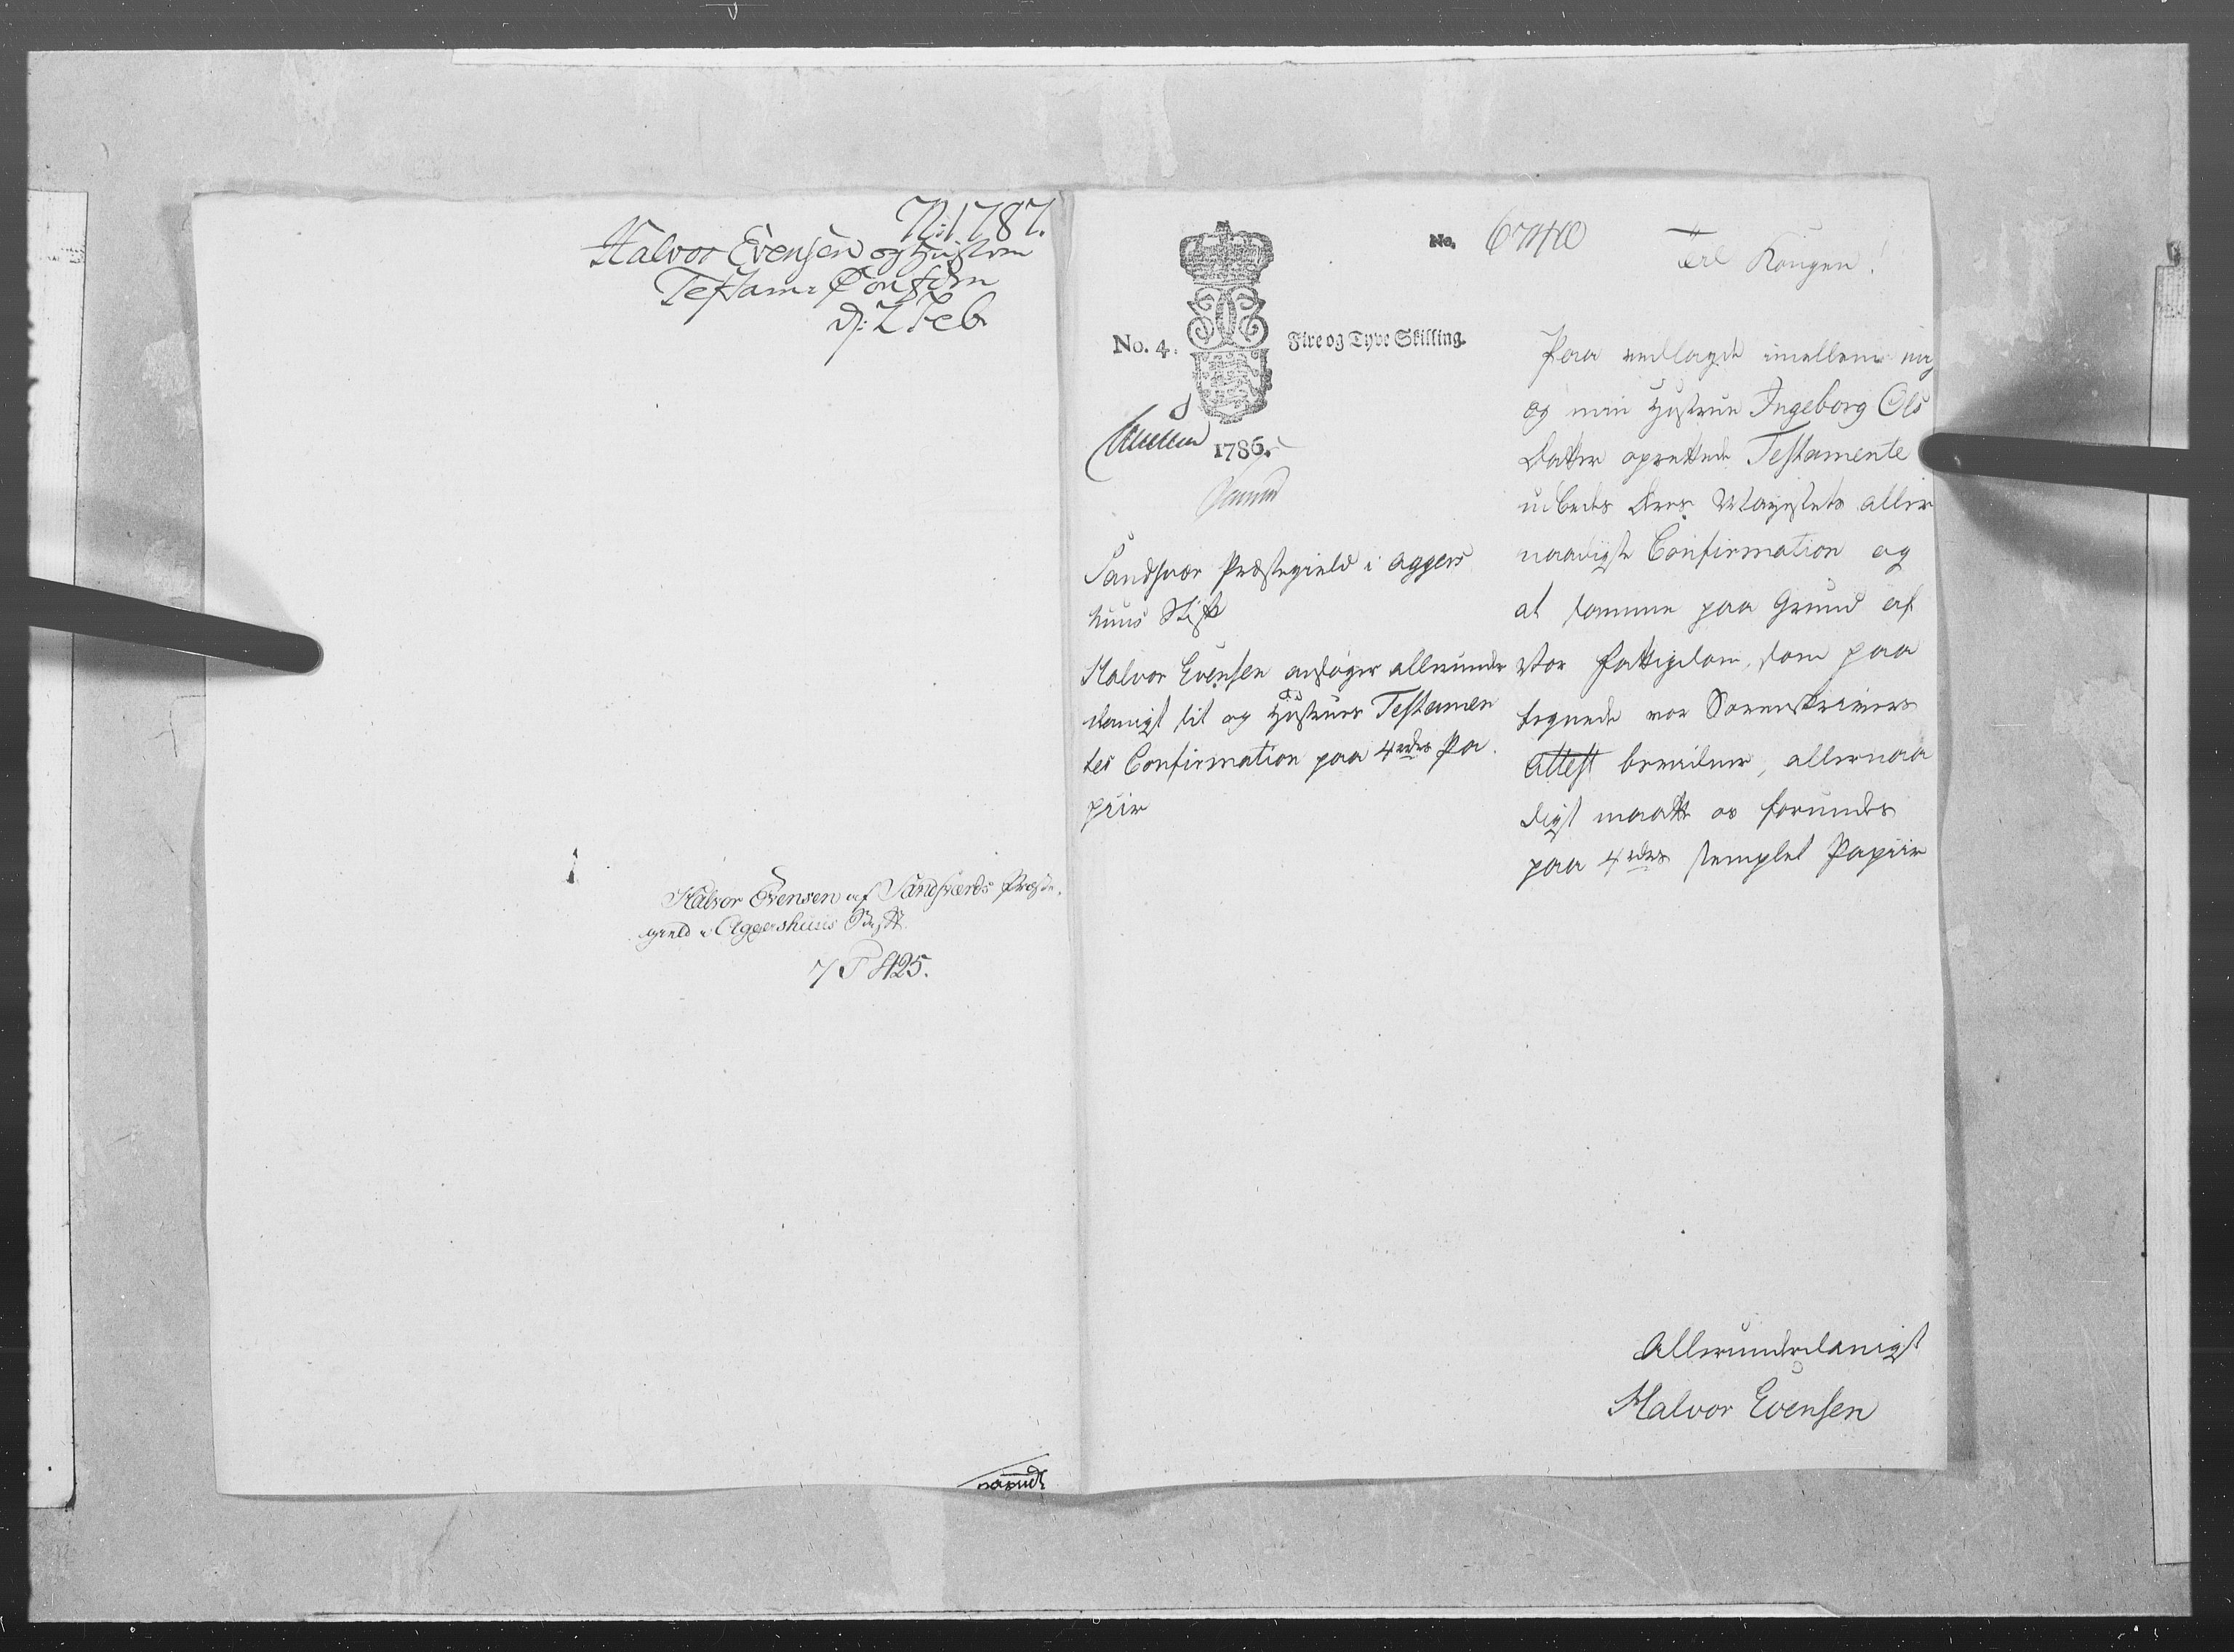 N: 1787.
Halvor Evensen og Hustrue
Testam: Confirm
d: 2 Feb
Halvor Evensen af Sandsværds Præste-
gield i Aggershuus Stift
7 P 425.
No. 6740
Til Kongen!
No. 4. Fire og Tyve Skilling.
1786.
Sandsvær Præstegield i Aggers
huus Stift
Halvor Evensen ansøger allerunder
danigst sit og Hustrues Testamen
tes Confirmation paa 4rdes Pa
piir
Paa vedlagde imellem mig
og min Hustrue Ingeborg Ols
Datter oprettede Testamente
udbedes Deres Majestets aller
naadigste Confirmation og
at samme paa Grund af
vor Fattigdom, som paa
tegnede vor Sorenskrivers
Attest bevidner, allernaa
digst maatte os forundes
paa 4rdes stemplet Papiir
Allerunderdanigst
Halvor Evensen